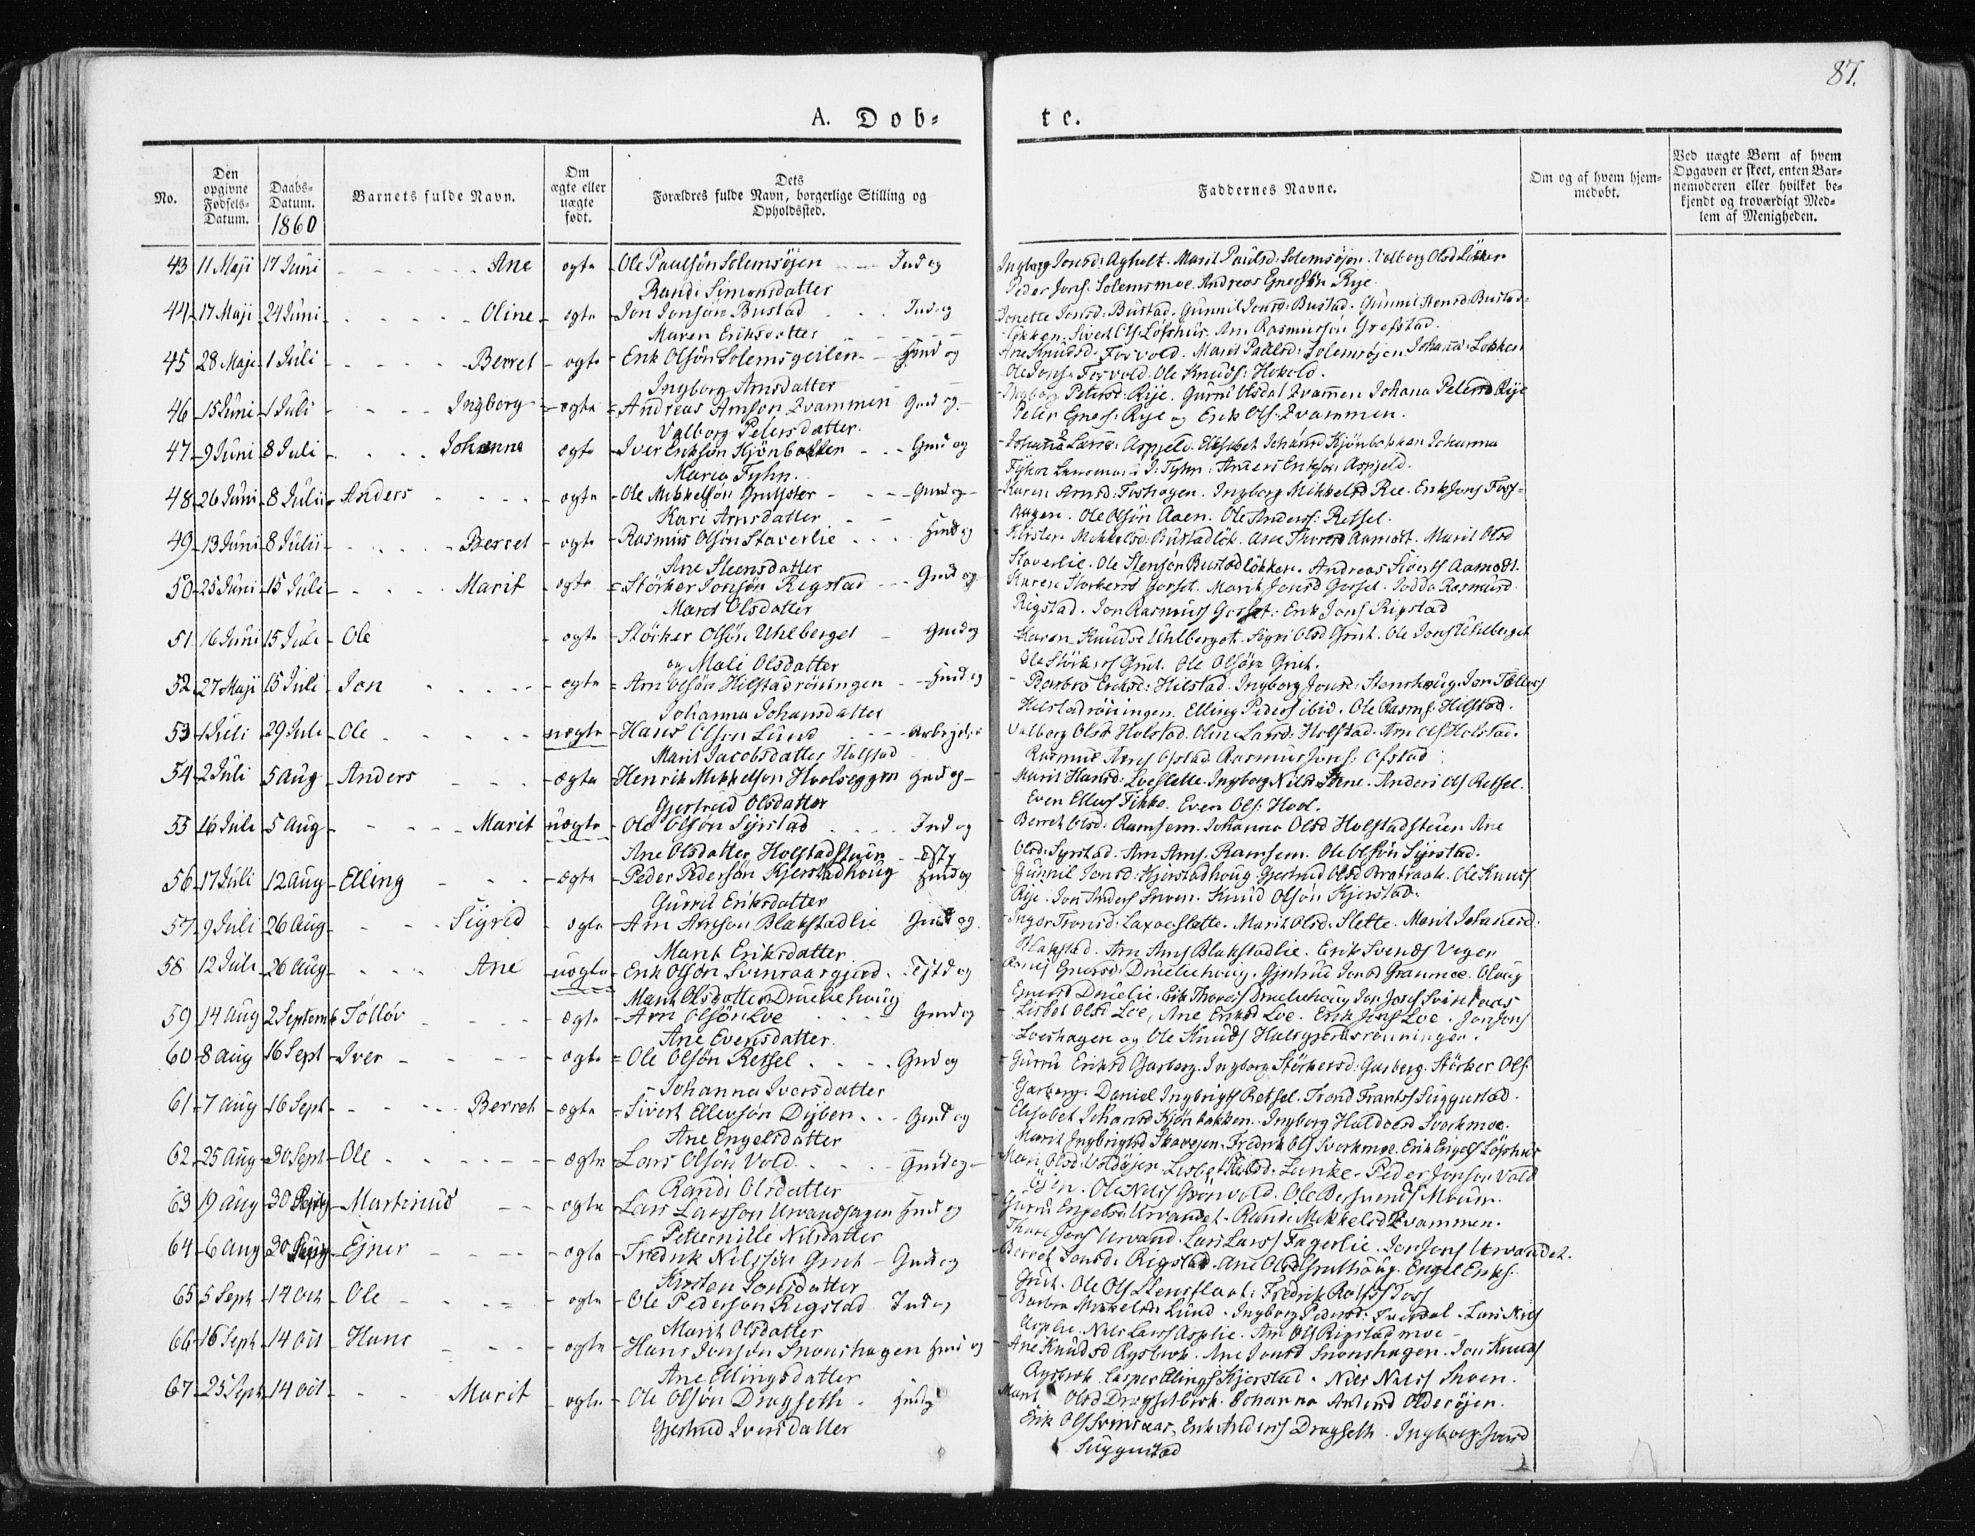 87.
A. Dob=
te.
No.
Den opgivne Fødsels-Datum.
Daabs-Datum. 1860
Barnets fulde Navn.
Om ægte eller uægte født.
Dets Forældres fulde Navn, borgerlige Stilling og Opholdssted.
Faddernes Navne.
Om og af hvem hjemmedøbt.
Ved uægte Børn af hvem Opgaven er skeet, enten Barnemoderen eller hvilket bekjendt og troværdigt Medlem af Menigheden.
43 11 Maji 17 Juni Ane ægte Ole Paulsøn Solemsøjen Ind og
Randi Simonsdatter
Marit Paulsd: Solemsøjen. Valborg Olsd Løkken
Peder Jons: Solemsmoe. Andreas Rye.
44 17 Maji 24 Juni Oline ægte Jon Jonsøn Bustad Ind og
Maren Eriksdatter
Jonette Jonsd: Bustad. Gunnil Jonsd: Bustad. Gunnil Stensd: Bustad=
løkken. Sivert Ols Løfshus. Arn Rasmussøn Grefstad.
45 28 Maji 1 Juli Berret ægte Erik Olsøn Solemsgeilen Hmd og
Ingborg Arnsdatter
Ane Knudsd: Fosvold. Marit Paulsd: Solemsøjen. Johanna Løkken
Ole Jons: Fosvold. Ole Knuds:
46 15 Juni 1 Juli Ingborg ægte Andreas Arnson Kvammen Gmd og
Valborg Petersdatter.
Ingborg Petersd: Rye. Gurru Olsdat Kvammen Johana Petersd Rye
Peter Eners: Rye og Erik Ols: Kvammen.
47 9 Juni 8 Juli Johanne ægte Iver Eriksøn Kjønbakken Gmd og
Maria Tyhn.
Johanna Larsd: Aspjeld. Elisabet Johansd Kjønbakken Johanna
Anders Eriksøn Aspjeld.
48 26 Juni 8 Juli Anders ægte Ole Mikkelsøn Gmd og
Kari Arnsdatter
Karen Arnsd: Foshagen. Ingborg Mikkelsd Rie. Erik Jons Fos=
hagen. Ole Olsøn Aaen. Ole Anders: Retsel.
49 13 Juni 8 Juli Berret ægte Rasmus Olsøn Staverlie Hmd og
Ane Steensdatter
Kirsten Mikkelsd: Bustadløk. Ane Aamodt. Marit Olsd
Staverlie. Ole Stensøn Bustadløkken. Andreas Siverts Aamodt.
50 25 Juni 15 Juli Marit ægte Størker Jonsøn Rigstad Gmd og
Maret Olsdatter
Karen Størkersd Gorset. Marit Jonsd Gorset. Rasmusd.
Rigstad. Jon Rasmuss Gorset. Erik Jons Rigstad
51 16 Juni 15 Juli Ole ægte Størker Olsøn Uhlberget Gmd og
og Mali Olsdatter
Karen Knudsd Uhlberget. Sigri Olsd Grut. Ole Jons Uhlberget
Ole Størkers Grut. Ole Olsøn Grut.
52 27 Maji 15 Juli Jon ægte Arn Olsøn Hilstadrøningen Hmd og
Johanna Johansdatter
Barbro Eriksd: Hilstad. Ingborg Jonsd: Stenshoug.
Hilstadrøningen. Elling Peders ibid. Ole Rasms: Hilstad.
53 1 Juli 29 Juli Ole uægte Hans Olson Lund Arbejder
Marit Jacobsdatter Holstad
Valborg Olsd Holstad. Larsd: Holstad. Arn Ols Holstad.
Rasmus Ofstad. Rasmus Jons: Ofstad
54 2 Juli 5 Aug Anders ægte Henrik Mikkelson Hoolseggen Gmd og
Gjertrud Olsdatter
Marit Hansd: Loeslette. Ingborg Nilsd Anders Ols Retsel.
Even Ellefs Fikke. Even Ols: Hool.
55 16 Juli 5 Aug Marit uægte Ole Olsøn Syrstad Ind og
Ane Olsdatter Holstadstuen
Berret Olsd: Ramsem. Johanna Olsd Holstadstuen Ane
Olsd: Syrstad. Arn Arns. Ramsem. Ole Olsøn Syrstad.
56 17 Juli 12 Aug Elling ægte Peder Pedersøn Kjerstadhoug Hmd og
Gurru Eriksdatter
Gunnil Jonsd: Kjerstadhoug. Gjertrud Olsd Bratraak. Ole Knuds
Rye. Jon Anders Knud Olsøn Kjerstad.
57 9 Juli 26 Aug Sigrid ægte Arn Arnson Blakstadlie Gmd og
Marit Eriksdatter
Tronsd: Slette. Marit Olsd: Slette. Marit Johansd:
Blakstad. Arn Arns Blakstadlie. Erik Svends
58 12 Juli 26 Aug Ane uægte Erik Olsøn Svinsaasgjerd
Marit Olsdatter Druliehoug
Druliehoug. Gjertrud Jonsd Graamoe.
Druliehoug Jon Josefs Svinsaas
59 14 Aug 2 Septemb Tølløv ægte Arn Olsøn Loe Gmd og
Ane Evensdatter.
Lisbet Olsd Loe, Ane Eriksd Loe. Erik Jons Loe. Jon Jons
Loeshagen og Ole Knuds
60 8 Aug 16 Sept Iver ægte Ole Olsøn Retsel Gmd og
Johanna Iversdatter
Gurru Eriksd Garberg. Ingborg Størkersd: Garberg. Størker Ols
Garberg. Daniel Ingbrigts Retsel. Trond Frants Suggustad.
61 7 Aug 16 Sept Berret ægte Sivert Ellevsøn Dyben Gmd og
Ane Engelsdatter
Elisabet Johansd Kjønbakken. Ingborg Haldorsd Svorkmoe.
Marit Ingbrigtsd Skavøjen. Fredrik Ols Svorkmoe. Erik Engels Løfshus
62 25 Aug 30 Sept Ole ægte Lars Olsøn Vold Gmd og
Randi Olsdatter
Mari Olsd: Voldøjen Lisbet Lunke. Peder Jonson Vold
øjen. Ole Nils Grønvold. Ole Moum.
63 19 Aug 30 Sept Martinus ægte Lars Larsson Urvandshagen Hmd og
Peternille Nilsdatter
Gurru Engelsd Urvandet. Randi Mikkelsd Kvammen.
Thore Jons Urvand. Lars Larss Fagerlie. Jon Jons Urvandet.
64 6 Aug 30 Sept Ejner ægte Fredrik Nilssøn Grut Gmd og
Kirsten Jonsdatter
Berret Jonsd: Rigstad. Ane Olsd Gruthoug. Engel Eriks
Grut. Ole Ols Stensflaat. Fredrik Foss
65 5 Sept 14 Oct Ole ægte Ole Pederson Rigstad Ind og
Marit Olsdatter
Barbro Mikkelsd: Lund. Ingborg Pedersd: Lars Nils
Asplie. Nils Larss Asplie. Arn Ols Rigstadmoe
66 16 Sept 14 Oct Hans ægte Hans Jonsøn Snoushagen Hmd og
Ane Ellingsdatter
Ane Knudsd Rysbrok. Ane Jonsd Snoushagen. Jon Knuds
Rysbrok. Casper Ellings Kjerstad. Nils Nils
67 25 Sept 14 Oct Marit ægte Ole Olsøn Dragseth Hmd og
Gjertrud Iversdatter
Marit Olsd Johanna Olderøjen.
Erik Ols Svinsaas, Erik Anders Dragseth. Ingborg
Suggustad